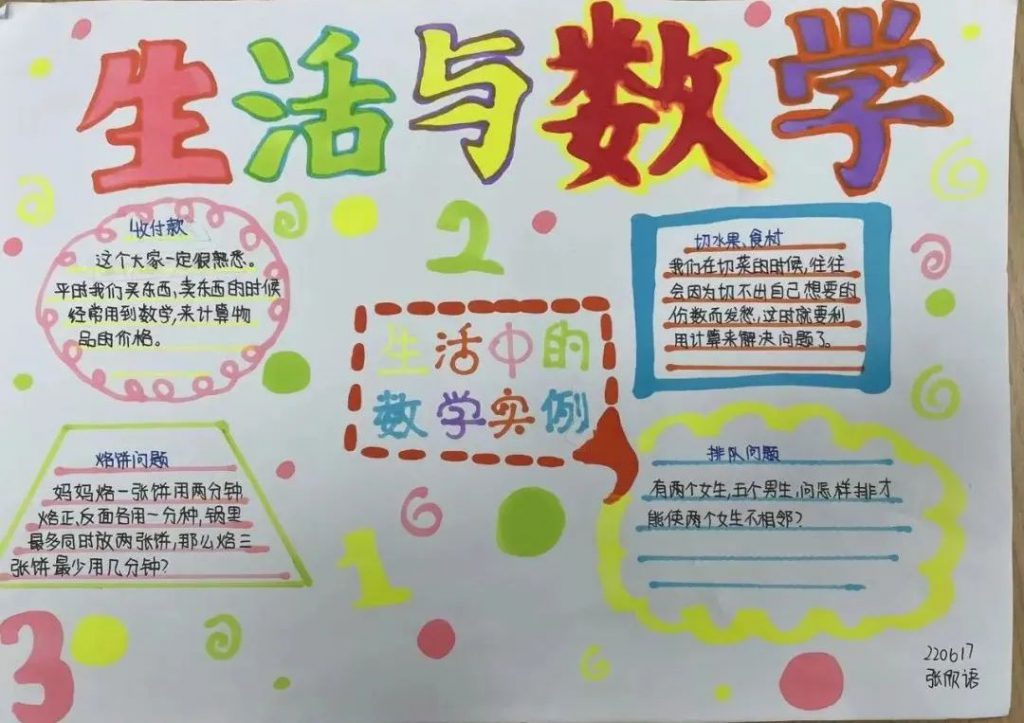 生活与数学
收付款
这个大家一定很熟悉。
平时我们买东西,卖东西的时候
经常用到数学,来计算物
品的价格。
2
切水果、食材
我们在切菜的时候,往往
会因为切不出自己想要的
份数而发愁,这时就要利
用计算来解决问题了。
生活中的
数学实例
烙饼问题
妈妈烙一张饼用两分钟
烙正,反面各用一分钟,锅里
最多同时放两张饼,那么烙三
张饼最少用几分钟?
排队问题
有两个女生,五个男生,问怎样排才
能使两个女生不相邻?
1
3
220617
张欣语